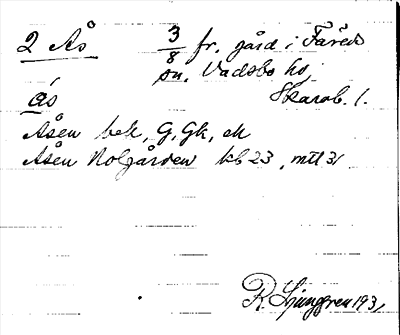 2 Ås 3/8 fr. gård i Färeds
sn. Vadsbo hd
Skarab. l.
ås
Åsen bek, G, Gk, ek
Åsen Nolgården kb 23, mtl 31
R. Ljunggren 1931